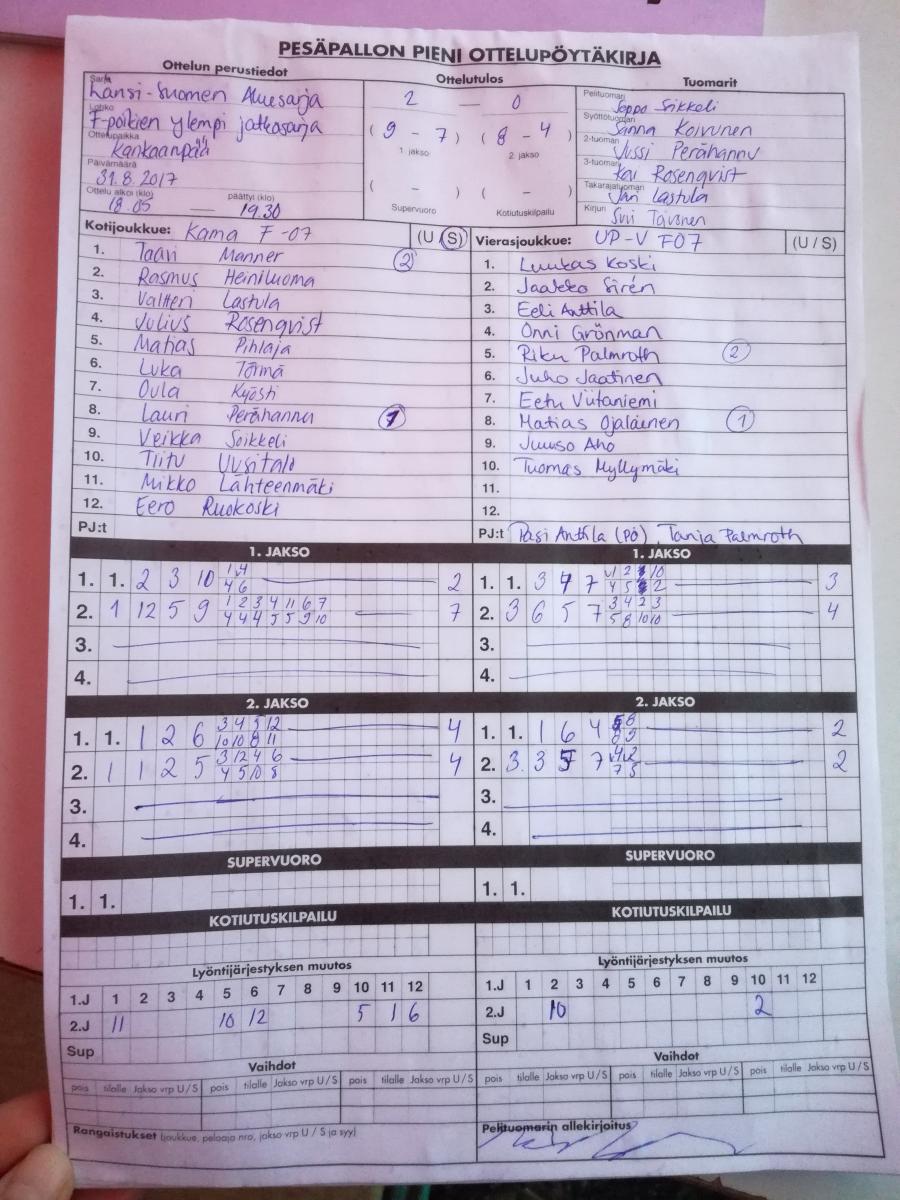 PESÄPALLON PIENI OTTELUPÖYTÄKIRJA
Ottelun perustiedot
Ottelutulos
Tuomarit
Sarja
Länsi-Suomen Aluesarja
Lohko
F-poikien ylempi jatkosarja
Ottelupaikka
Kankaanpää
Päivämäärä
31.8.2017
Ottelu alkoi (klo) päättyi (klo)
18.05 — 19.30
2 — 0
( 9 - 7 ) ( 8 - 4 )
1. jakso 2. jakso
( - ) ( - )
Supervuoro Kotiutuskilpailu
Pelituomari
Seppo Soikkeli
Syöttötuomari
Sanna Koivunen
2-tuomari
Jussi Perähannu
3-tuomari
Kai Rosenqvist
Takarajatuomari
Jari Lastula
Kirjuri
Suvi Taivonen
Kotijoukkue: Kama F-07 (U / S)
1. Taavi Manner 2
2. Rasmus Heiniluoma
3. Valtteri Lastula
4. Julius Rosenqvist
5. Matias Pihlaja
6. Luka Töimä
7. Oula Kyösti
8. Lauri Perähannu 1
9. Veikka Soikkeli
10. Tiitu Uusitalo
11. Mikko Lähteenmäki
12. Eero Ruokoski
PJ:t
Vierasjoukkue: UP-V F07 (U / S)
1. Luukas Koski
2. Jaakko Sirén
3. Eeli Anttila
4. Onni Grönman
5. Riku Palmroth 2
6. Juho Jaatinen
7. Eetu Viitaniemi
8. Matias Ojalainen 1
9. Juuso Aho
10. Tuomas Myllymäki
11.
12.
PJ:t Pasi Anttila (PÖ), Tanja Palmroth
1. JAKSO
1. 1. 2 3 10 1 4 2
4 6
2. 1 12 5 9 1 2 3 4 11 6 7 7
4 4 4 5 5 9 10
3.
4.
1. JAKSO
1. 1. 3 4 7 1 2 10 3
4 5 2
2. 3 6 5 7 3 4 2 3 4
5 8 10 10
3.
4.
2. JAKSO
1. 1. 1 2 6 3 4 5 12 4
10 10 8 11
2. 1 1 2 5 3 12 4 6 4
4 5 10 8
3.
4.
2. JAKSO
1. 1. 1 6 4 8 2
8 9
2. 3. 3 5 7 2 2
7 8
3.
4.
SUPERVUORO
1. 1.
SUPERVUORO
1. 1.
KOTIUTUSKILPAILU
KOTIUTUSKILPAILU
Lyöntijärjestyksen muutos
1.J 1 2 3 4 5 6 7 8 9 10 11 12
2.J 11 10 12 5 1 6
Sup
Lyöntijärjestyksen muutos
1.J 1 2 3 4 5 6 7 8 9 10 11 12
2.J 10 2
Sup
Vaihdot
pois tilalle Jakso vrp U / S pois tilalle Jakso vrp U / S pois tilalle Jakso vrp U / S
Vaihdot
pois tilalle Jakso vrp U / S pois tilalle Jakso vrp U / S pois tilalle Jakso vrp U / S
Rangaistukset (joukkue, pelaaja nro, jakso vrp U / S ja syy)
Pelituomarin allekirjoitus